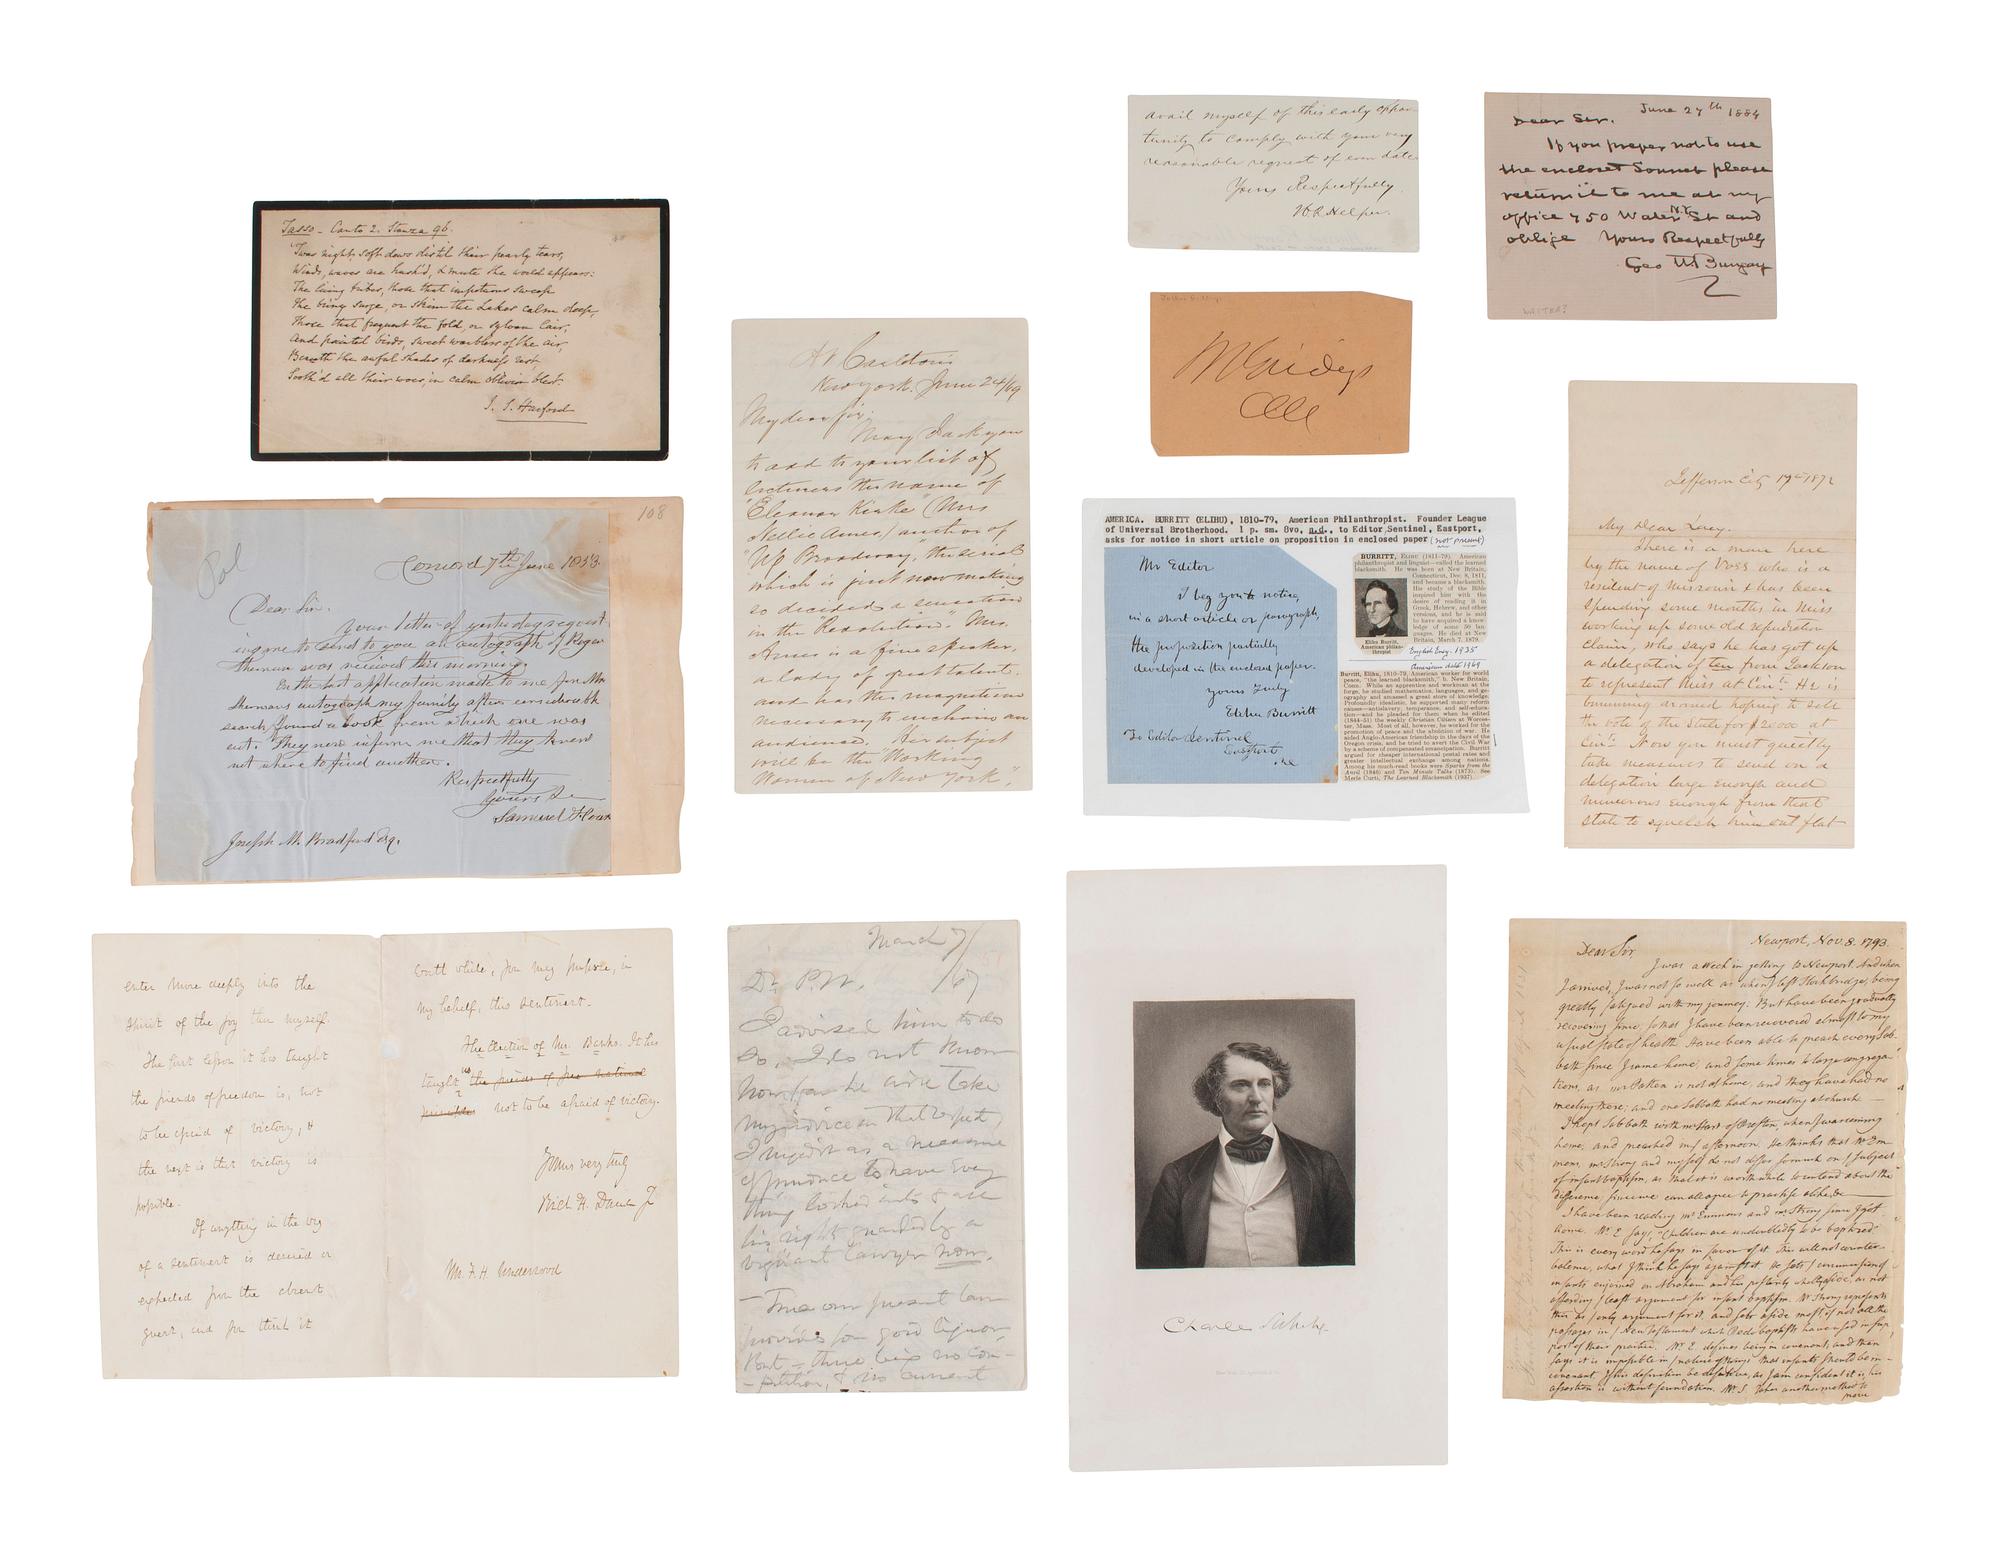 Tasso - Canto 2. Stanza 96.
'Twas night, soft dews distil their pearly tears,
Winds, waves are hush'd, & mute the world appears:
The living tribes, those that impetuous sweep
The briny surge, or skim the Lakes calm deep,
Those that frequent the fold, or sylvan lair,
And painted birds, sweet warblers of the air,
Beneath the awful shades of darkness rest,
Sooth'd all their woes, in calm oblivion blest.
J. S. Harford
108
Pol
Concord 7th June 1853.
Dear Sir.
Your letter of yesterday request
ing me to send to you an autograph of Roger
Sherman was received this morning.
On the last application made to me for Mr
Shermans autograph my family after considerable
search found a book from which one was
cut. They now inform me that they know
not where to find another.
Respectfully
Yours &c
Samuel Hoar
Joseph M. Bradford Esq.
enter more deeply into the
spirit of the joy than myself.
The first lesson it has taught
the friends of freedom is, not
to be afraid of victory, &
the next is that victory is
possible.
If anything in the way
of a sentiment is desired or
expected from the absent
guest, and you think it
worth while, you may propose, in
my behalf, this sentiment.
The Election of Mr. Banks. It has
taught us the friends of
not to be afraid of victory.
Yours very truly
Rich H. Dana Jr
Mr. F. H. Underwood
New York. June 24/69
My dear Sir:
May I ask you
to add to your list of
lecturers the name of
"Eleanor Kirke" (Mrs
Nellie Ames) author of
"Up Broadway," the serial
which is just now making
so decided a sensation
in the "Revolution". Mrs.
Ames is a fine speaker,
a lady of great talent,
and has the magnetism
necessary to enchain an
audience. Her subject
will be the "Working
Women of New York",
March 7/
Dr. P. W. /67
I advised him to do
so, I do not know
how far he will take
my advice in that respect,
I urged it as a measure
of prudence to have every
thing looked into & all
his rights guarded by a
vigilant lawyer now.
- True our present law
provides for good liquor,
But - there is no com-
-petition, & no current
avail myself of this early oppor-
tunity to comply with your very
reasonable request of even date.
Yours Respectfully,
H R Helper.
June 27th 1884
Dear Sir.
If you prefer not to use
the enclosed Sonnet please
return it to me at my
office 750 Water St N.Y. and
oblige Yours Respectfully
Geo W. Bungay
WRITER?
AMERICA. BURRITT (ELIHU), 1810-79, American Philanthropist. Founder League
of Universal Brotherhood. 1 p. sm. 8vo, n.d., to Editor Sentinel, Eastport,
asks for notice in short article on proposition in enclosed paper (not present)
Mr Editor
I beg you to notice,
in a short article or paragraph,
the proposition partially
developed in the enclosed paper.
Yours truly
Elihu Burritt
To Editor Sentinel
Eastport
Me
BURRITT, ELIHU (1811-79). American
philanthropist and linguist—called the learned
blacksmith. He was born at New Britain,
Connecticut, Dec. 8, 1811,
and became a blacksmith.
His study of the Bible
inspired him with the
desire of reading it in
Greek, Hebrew, and other
versions, and he is said
to have acquired a know-
ledge of some 50 lan-
guages. He died at New
Britain, March 7, 1879.
Elihu Burritt,
American philan-
thropist
English Ency. 1935
American date 1969
Burritt, Elihu, 1810-79, American worker for world
peace, "the learned blacksmith," b. New Britain,
Conn. While an apprentice and workman at the
forge, he studied mathematics, languages, and ge-
ography and amassed a great store of knowledge.
Profoundly idealistic, he supported many reform
causes—antislavery, temperance, and self-educa-
tion—and he pleaded for them when he edited
(1844-51) the weekly Christian Citizen at Worces-
ter, Mass. Most of all, however, he worked for the
promotion of peace and the abolition of war. He
aided Anglo-American friendship in the days of the
Oregon crisis, and he tried to avert the Civil War
by a scheme of compensated emancipation. Burritt
argued for cheaper international postal rates and
greater intellectual exchange among nations.
Among his much-read books were Sparks from the
Anvil (1846) and Ten Minute Talks (1873). See
Merle Curti, The Learned Blacksmith (1937).
Jefferson City 19th 1872
My Dear Lucy.
There is a man here
by the name of Voss who is a
resident of Missouri & has been
spending some months in Miss
working up some old repudiation
claim, who says he has got up
a delegation of ten from Jackson
to represent Miss at Cinti. He is
bumming around hoping to sell
the vote of the State for $2000 at
Cinti. Now you must quietly
take measures to send on a
delegation large enough and
numerous enough from that
state to squelch him out flat
Charles Sumner
Newport, Nov. 8. 1793.
Dear Sir,
I was a week in getting to Newport. And when
I arrived, I was not so well as when I left Stockbridge, being
greatly fatigued with my journey: But have been gradually
recovering since, so that I have been recovered almost to my
usual state of health. Have been able to preach every Sab-
bath since I came home, and some times to large congrega-
tions, as mr Patten is not at home, and they have had no
meeting there; and one Sabbath had no meeting at church—
I kept Sabbath with mr Hart of Preston, when I was coming
home, and preached in afternoon. He thinks that Mr Em-
mons, mr Strong and myself do not differ so much on subject
of infant baptism, as that it is worth while to contend about the
difference, since we can all agree to practise alike, &c
I have been reading mr Emmons and mr Strong since I got
home. Mr E. says, "Children are undoubtedly to be baptized."
This is every word he says in favor of it. This will not counter-
balance, what I think he says against it. He sets circumcision of
infants enjoined on Abraham and his posterity wholly aside, as not
affording least argument for infant baptism. Mr Strong represents
this as only argument for it, and sets aside most, if not all the
passages in New Testament which Pedobaptists have used in sup-
port of their practice. Mr E. defines being in covenant, and then
says it is impossible in nature of things that infants should be in
covenant. If his definition be definitive, as I am confident it is, his
assertion is without foundation. Mr S. takes another method to
prove